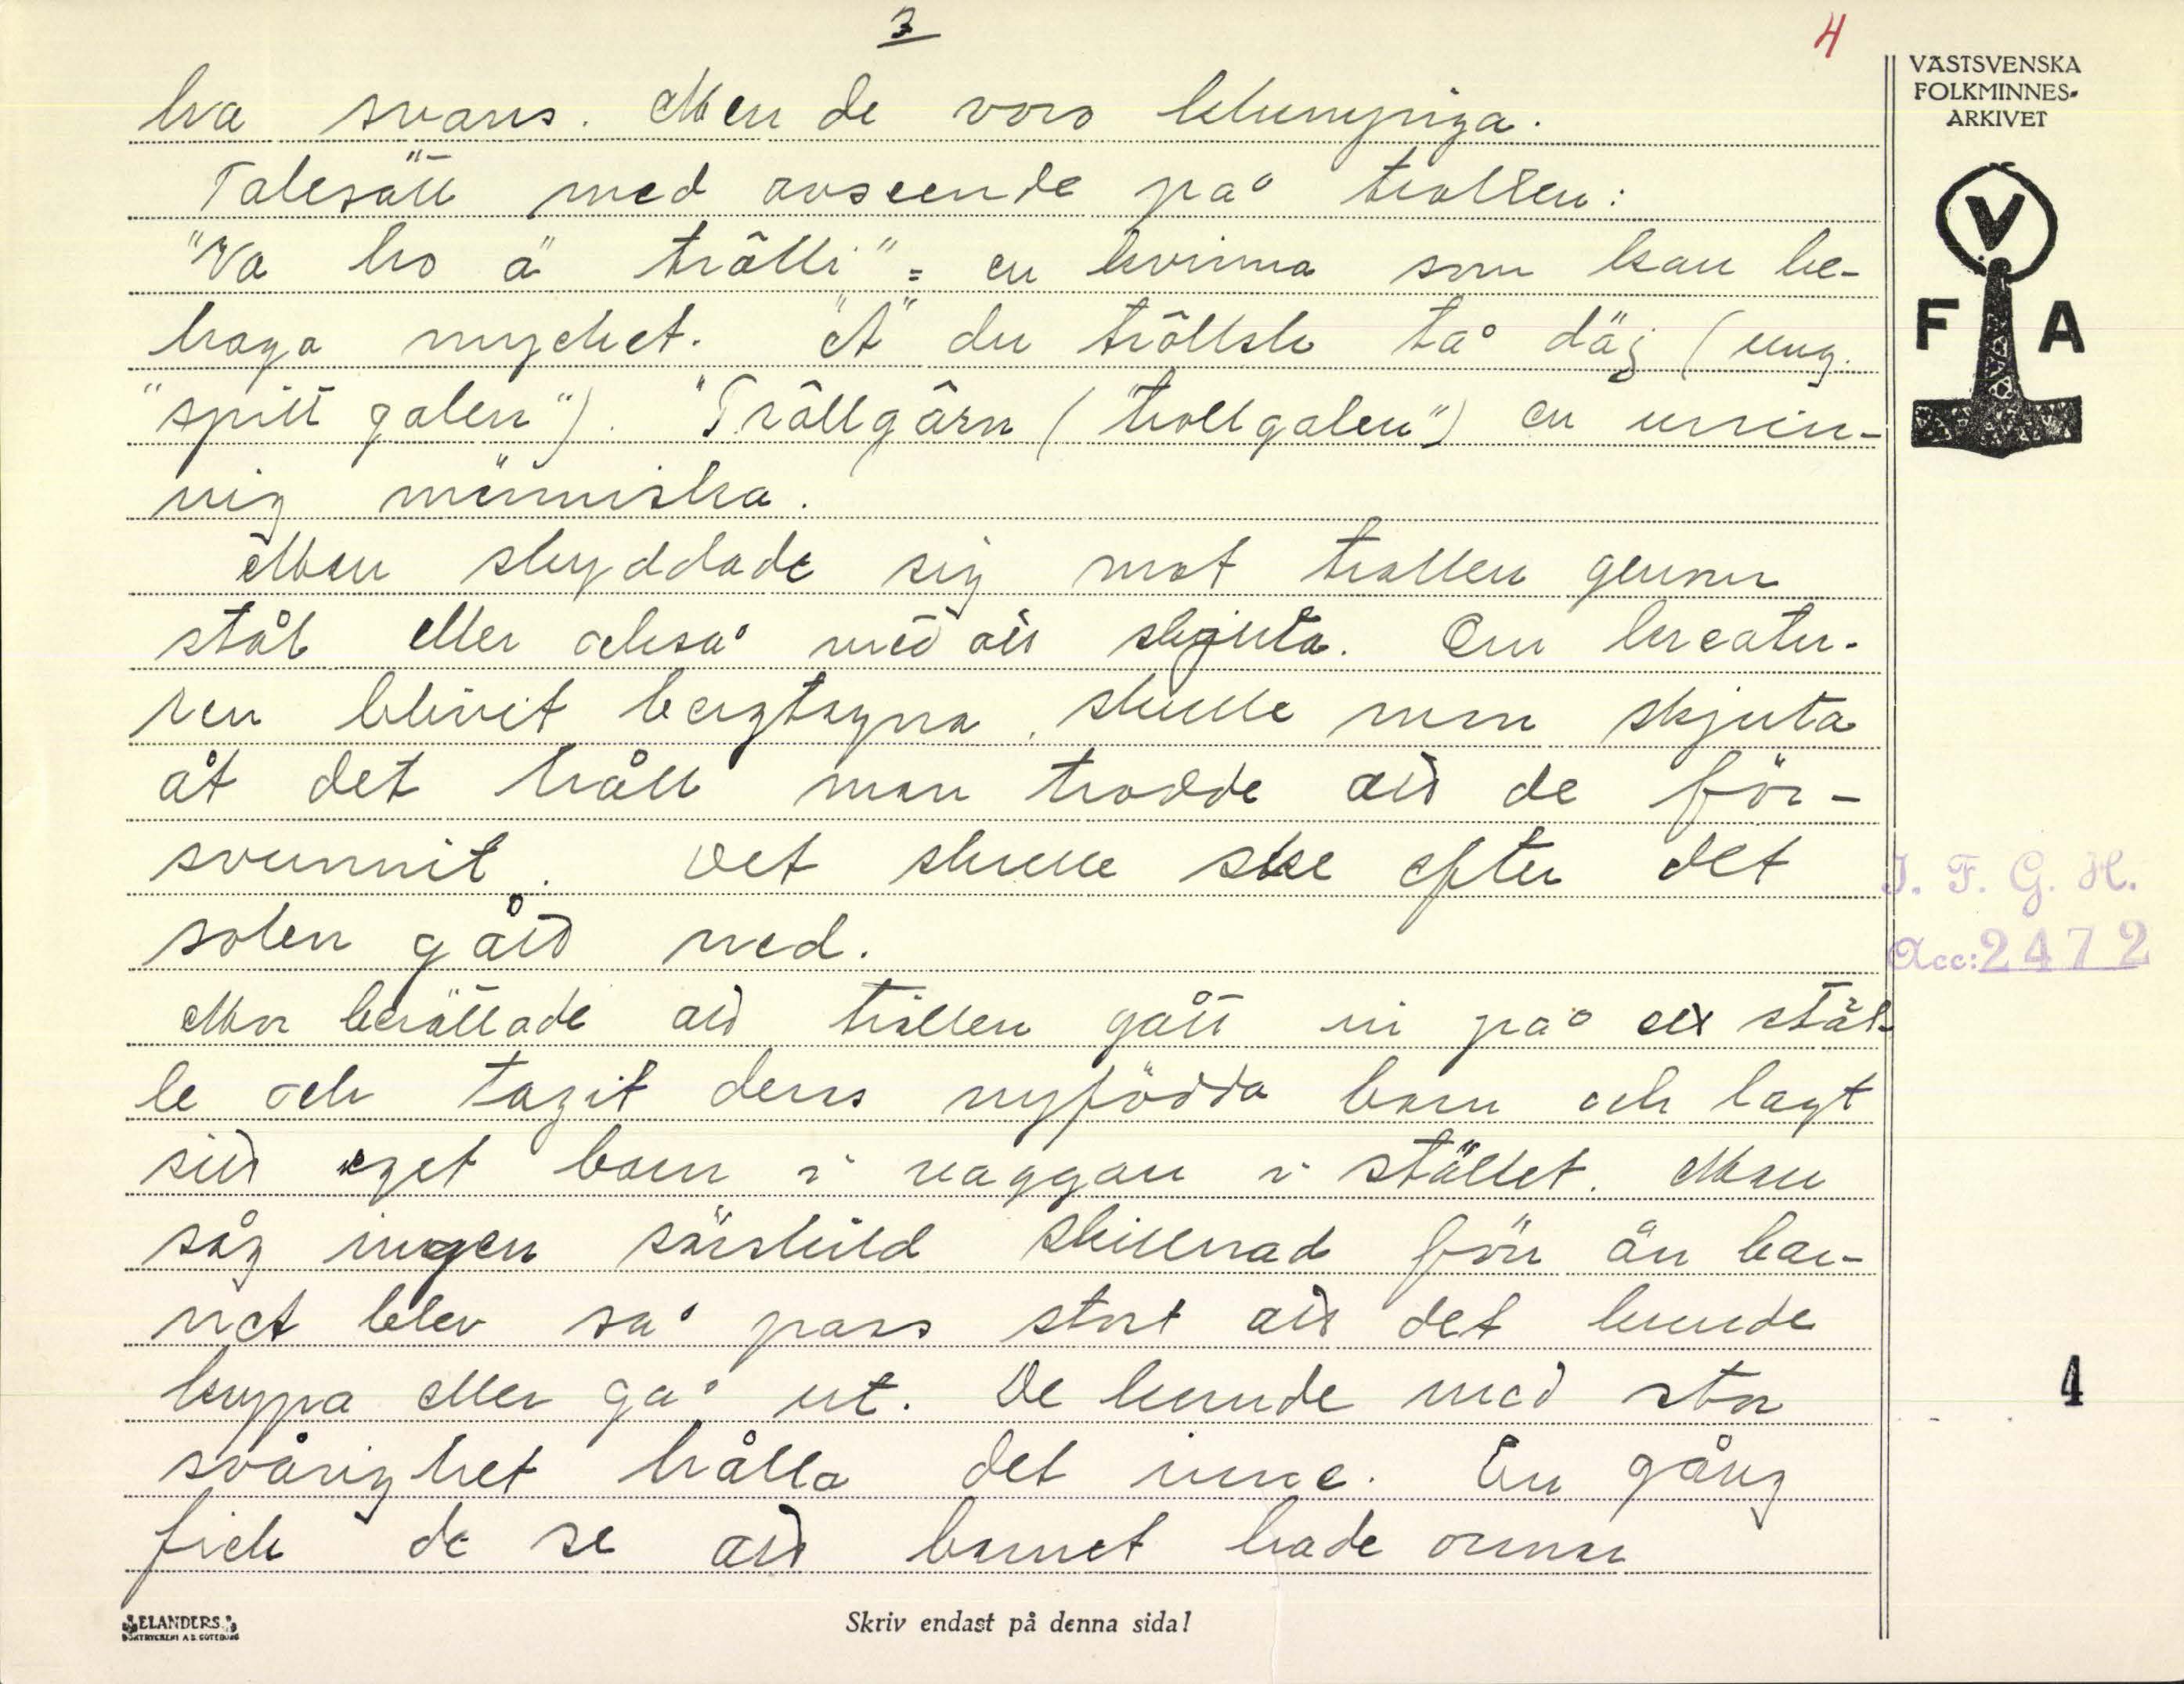 3
4
VÄSTSVENSKA
FOLKMINNES-
ARKIVET
V
F A
ha svans. Men de voro klumpiga.
Talesätt med avseende på trollen:
"Va ho ä trålli" = en kvinna som kan be-
haga mycket. "Ä" du trôllsk ta° däj (ung.
"spitt galen"). "Trôllgârn ("trollgalen") en ursin-
nig människa.
Man skyddade sig mot trollen genom
stål eller också med att skjuta. Om kreatu-
ren blivit bergtagna, skulle man skjuta
åt det håll man trodde att de för-
svunnit. Det skulle ske efter det
solen gått ned.
Mor berättade att trollen gått in på ett stäl-
le och tagit dens nyfödda barn och lagt
sitt eget barn i vaggan i stället. Man
såg ingen särskild skillnad förr än bar-
net blev så pass stort att det kunde
krypa eller gå ut. De kunde med stor
svårighet hålla det inne. En gång
fick de se att barnet hade orman
I. F. G. H.
Acc: 2472
4
ELANDERS
BOKTRYCKERI A.B. GÖTEBORG
Skriv endast på denna sida!